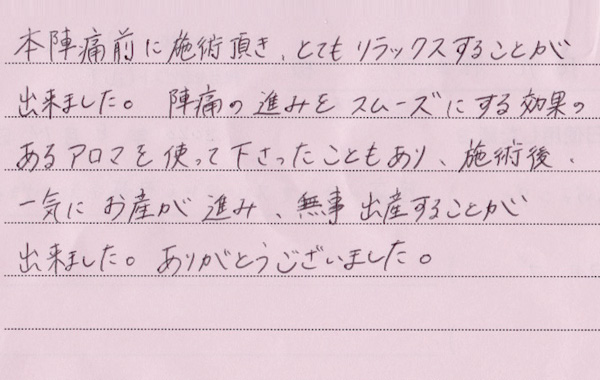 本陣痛前に施術頂き、とてもリラックスすることが
出来ました。陣痛の進みをスムーズにする効果の
あるアロマを使って下さったこともあり、施術後、
一気にお産が進み、無事出産することが
出来ました。ありがとうございました。